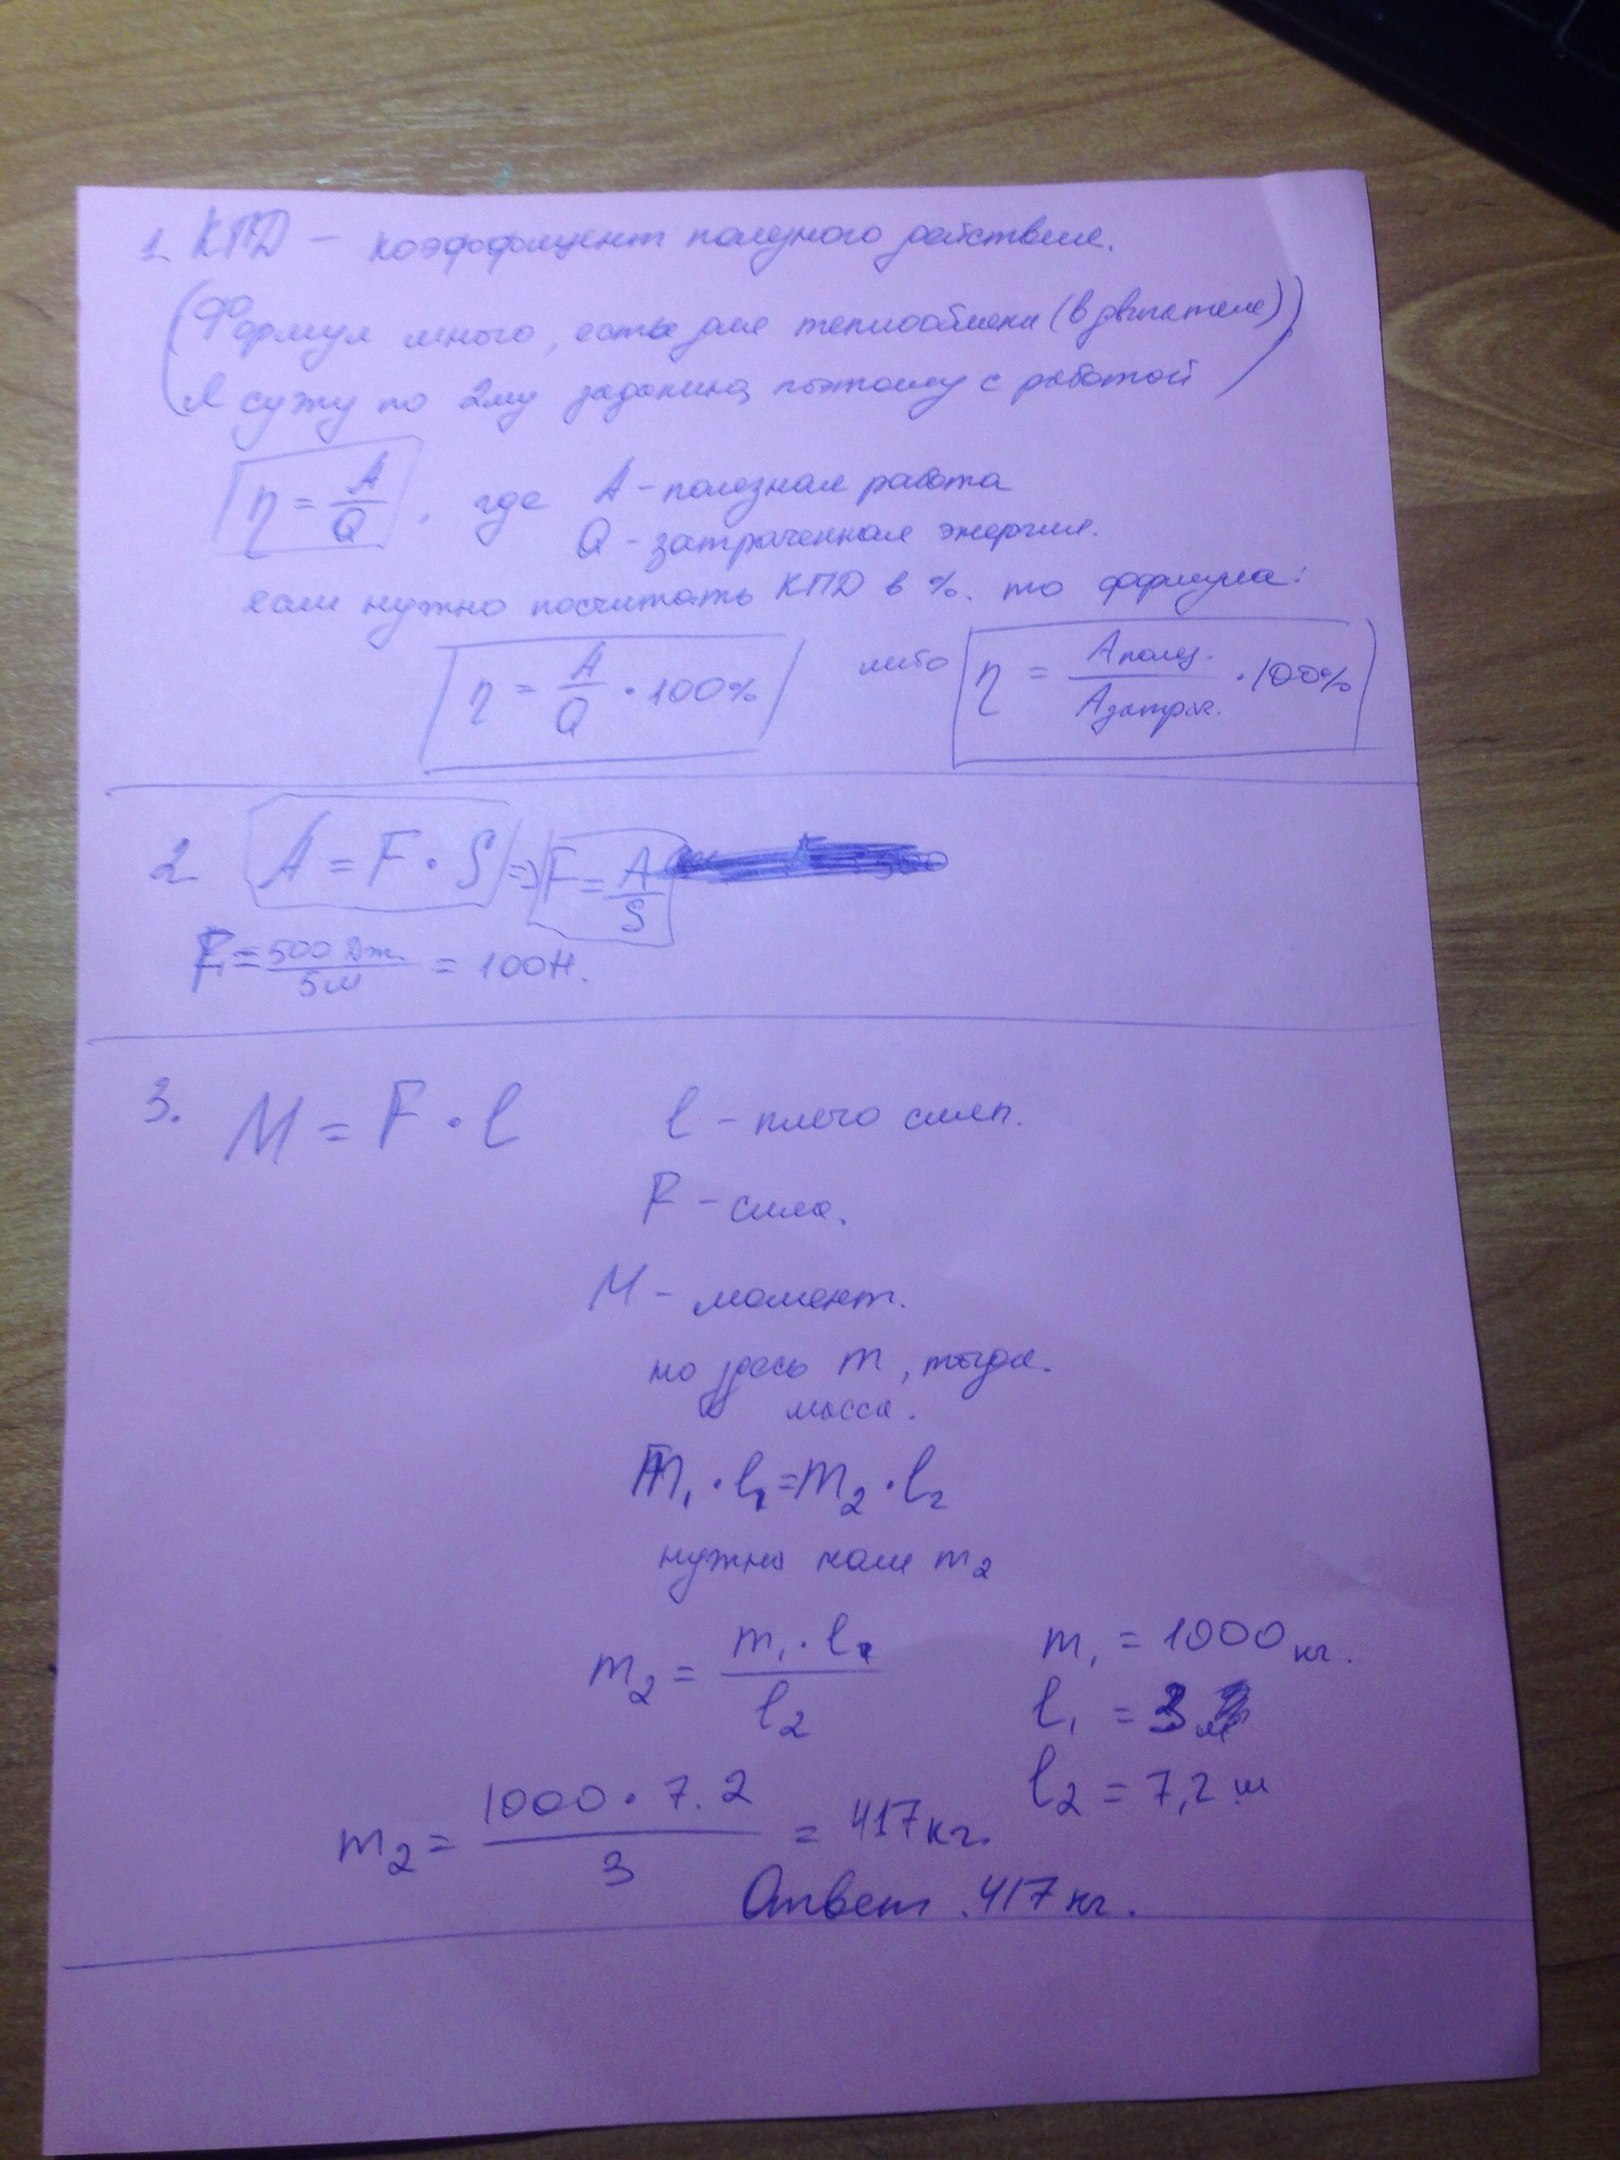 1. КПД - коэффициент полезного действия.
(Формул много, есть для теплообмена (в двигателе))
Я сужу по 2му заданию, поэтому с работой)
η = A/Q, где A - полезная работа
Q - затраченная энергия.
если нужно посчитать КПД в %. то формула:
η = A/Q · 100% либо η = Aполез./Aзатрач. · 100%
2 A = F · S => F = A/S
F = 500 Дж./5м = 100Н.
3. M = F · l l - плечо силы.
F - сила.
M - момент.
но здесь m, тогда
масса.
m₁ · l₁ = m₂ · l₂
нужна нам m₂
m₂ = m₁ · l₁/l₂ m₁ = 1000 кг.
l₁ = 3 м
l₂ = 7,2 м
m₂ = 1000 · 7.2/3 = 417кг.
Ответ. 417 кг.